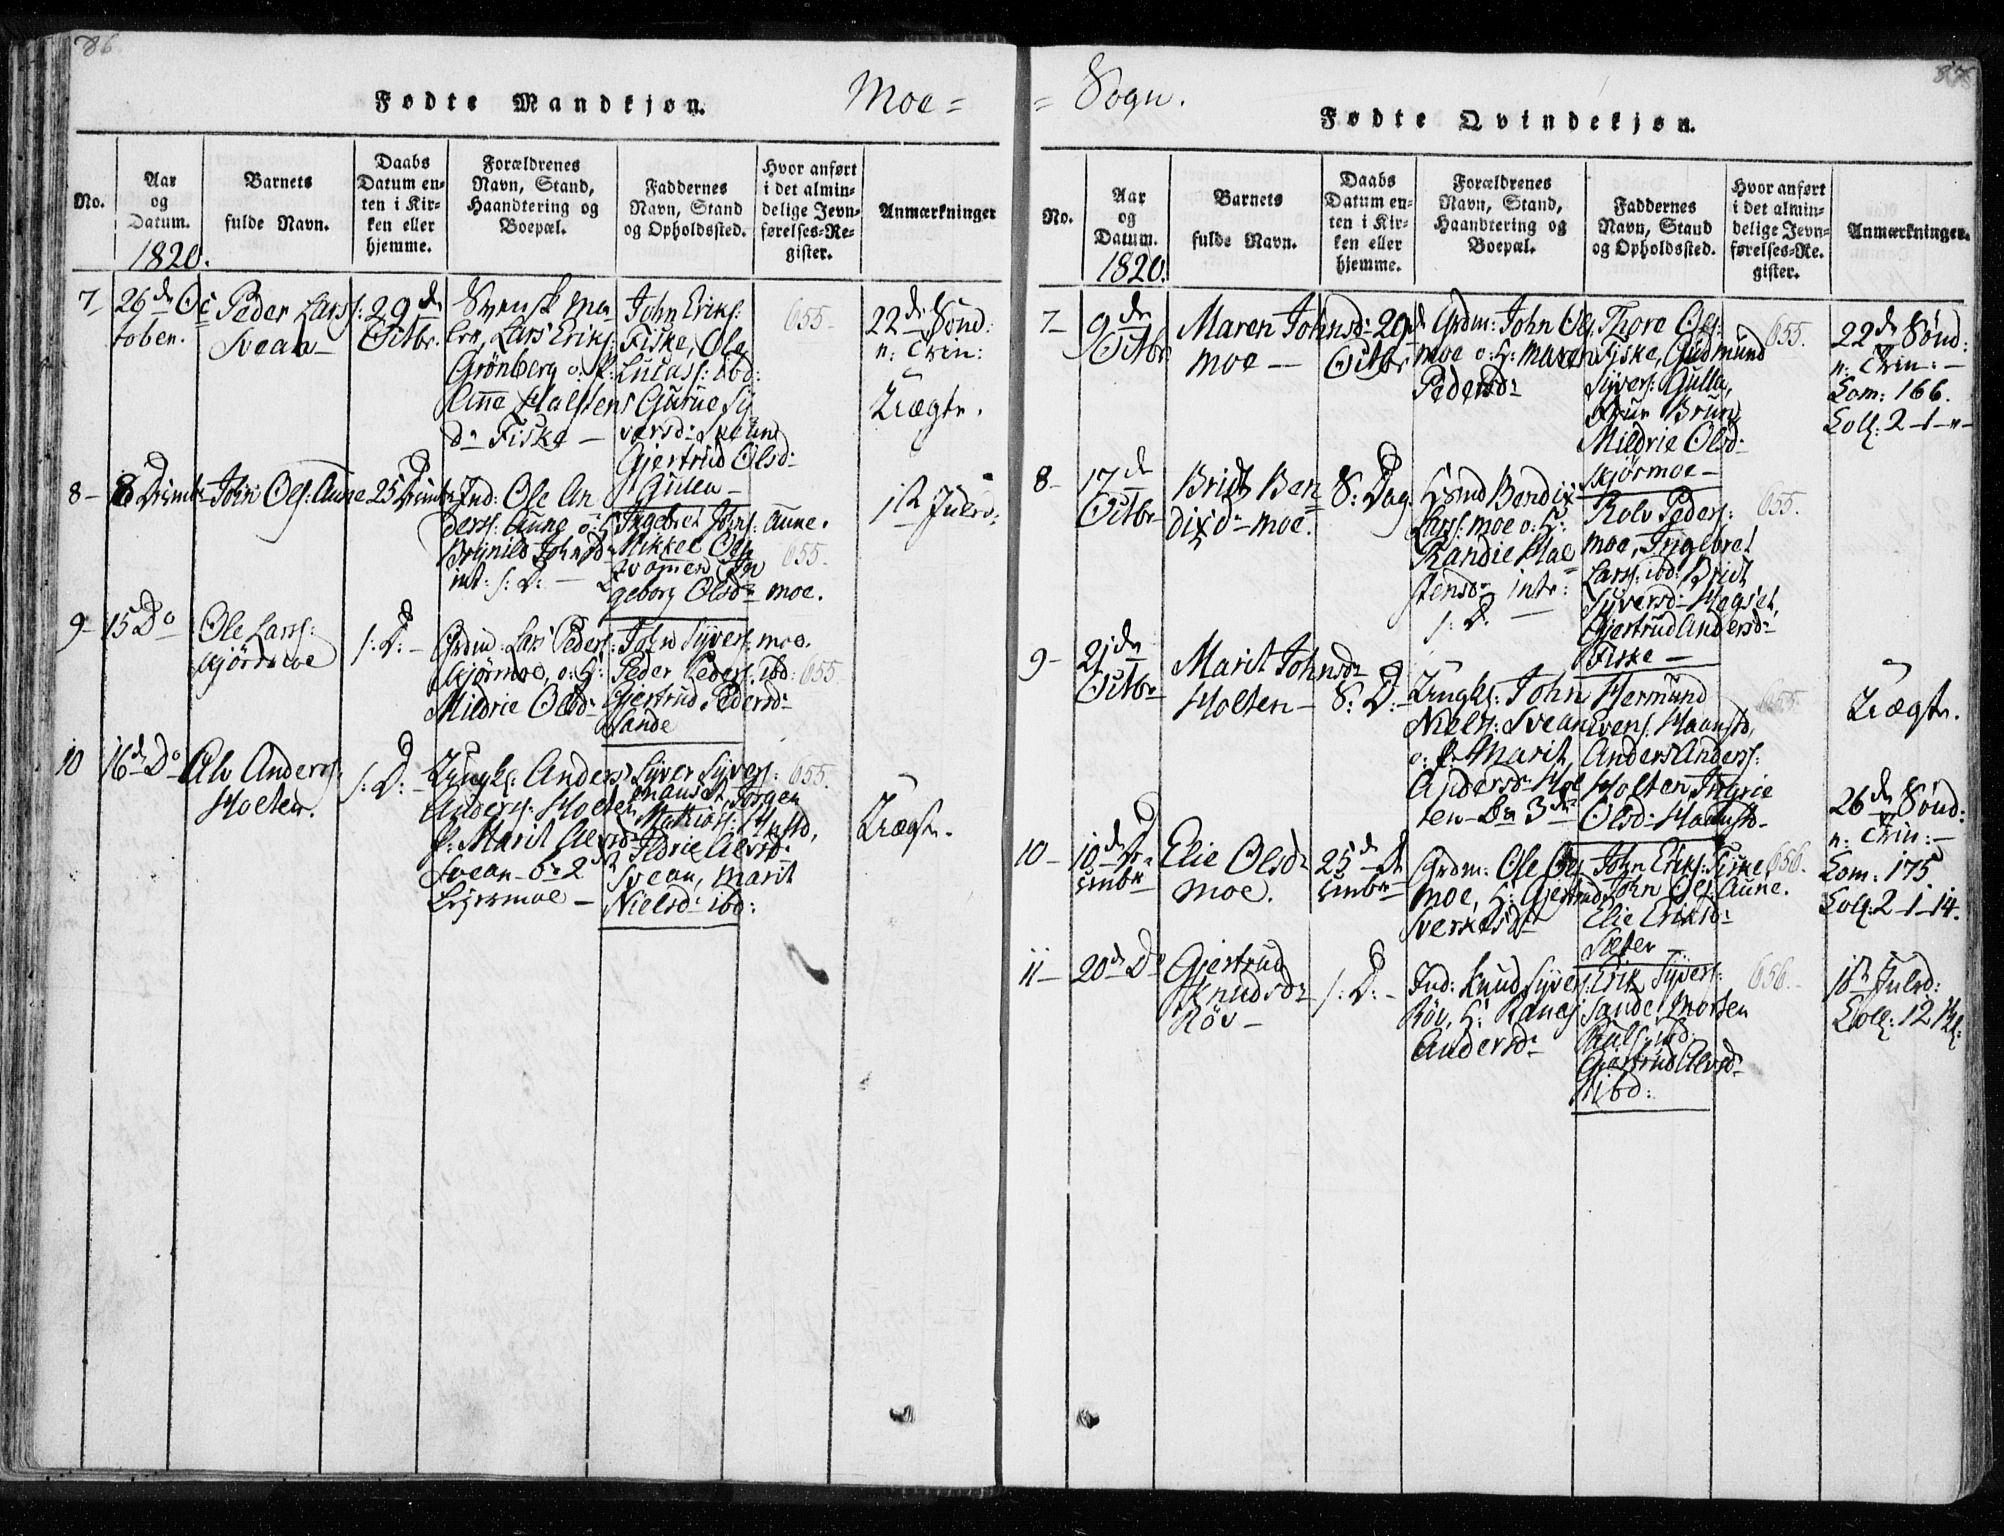 86.
Fødte Mandkjøn.
Moe=
No.
Aar
og
Datum.
1820.
Barnets
fulde Navn.
Daabs
Datum en-
ten i Kir-
ken eller
hjemme.
Forældrenes
Navn, Stand,
Haandtering og
Boepæl.
Faddernes
Navn, Stand
og Opholdssted.
Hvor anført
i det almin-
delige Jevn-
førelses-Re-
gister.
Anmærkninger
7
26de Oc
tober.
Peder Larss:
Svean
29de
Octbr.
Svensk ma
Lars Eriks:
Grönberg o: P:
Anne Halstens
dr Fiske –
John Eriks:
Fiske, Ole
Lucass: ibd:
Gurue Sy
versd:
Gjertrud Olsd:
Gulla –
655.
22de Sönd:
n: Trin:
Uægte.
8 –
8 Decembr
John Ols: Aune
25 Decembr
Ind: Ole An
derss: Aune o: H:
Brynild Johnsdr
Ingebret Johns: Aune.
Mikkel Ols
In
geborg Olsdr moe.
655.
1ste Juled:
9 –
15 Do
Ole Larss:
Kjörsmoe
s: D: –
Grdmd: Lars Peders:
Kjörmoe, o: H:
Mildrie Olsdr
John Syvers: moe.
Peder Peders: ibd:
Gjertrud Pedersdr
Sande
655.
10
16de Do
Alv Anderss:
Holten.
s: D: –
Ungk: Anders
Anderss: Holten
P: Marit Alvsdr
Svean – b: 2det
Leiersmoe –
Syver Syvers:
Jörgen
Mathiass:
Alvsdr
Svean, Marit
Nielsdr ibd:
655.
Uægte.
87
= Sogn.
Fødte Qvindekjøn.
No.
Aar
og
Datum.
1820.
Barnets
fulde Navn.
Daabs
Datum en-
ten i Kir-
ken eller
hjemme.
Forældrenes
Navn, Stand,
Haandtering og
Boepæl.
Faddernes
Navn, Stand
og Opholdssted.
Hvor anført
i det almin-
delige Jevn-
førelses-Re-
gister.
Anmærkninger.
7 –
9de
Octbr
Maren Johnsdr
moe –
29de
Octbr
Grdm: John Ols
moe o: H: Maren
Pedersdr
Thore Ols:
Fiske, Gudmund
Syvers: Gulla,
Brun
Mildrie Olsd:
Kjörmoe –
655.
22de Sönd:
n: Trin: –
Com: 166.
Coll: 2–1–"–
8 –
17de
Octbr
Brit Ben
dixdr moe.
S: Dag
Bendix
Larss: moe o: H:
Randie Hal
stensdr intr:
s: D. –
Rolv Peders:
moe, Ingebret
Larss: ibd: Brit
Syversdr Hegset,
Gjertrud Andersdr
Fiske –
655.
9 –
21de
Octbr
Marit Johnsdr
Holten –
S: D: –
Ungk: John
Niels: Svean
o: P: Marit
Andersdr Hol
ten – b: 3de
Hermund
Evens: Haanstd,
Anders Anderss:
Holten, Ingrie
Olsdr Haanstd.
655.
Uægte.
10 –
10de De
cembr
Elie Olsdr
moe.
25de De
cembr
Grdm: Ole Ols
moe, H: Gjertrud
Sverkesdr
John Eriks: Fiske,
John Ols: Aune.
Elie Eriksdr
Sæter –
656.
26de Sönd:
n: Trin: –
Com: 175
Coll: 2–1–14.
11 –
20de Do
Gjertrud
Knudsdr
Röv –
s: D: –
Ind: Knud Syvers:
Röv, H: Ranej
Andersdr
Erik Syvers:
Sande, Morten
Pauls: ibd:
Gjertrud Alvsdr
ibd:
656.
1ste Juled:
Coll: 12